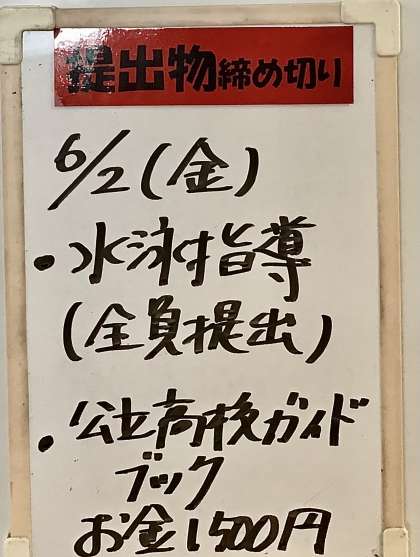 提出物締め切り
6/2(金)
・水泳指導
(全員提出)
・公立高校ガイド
ブック
お金1500円